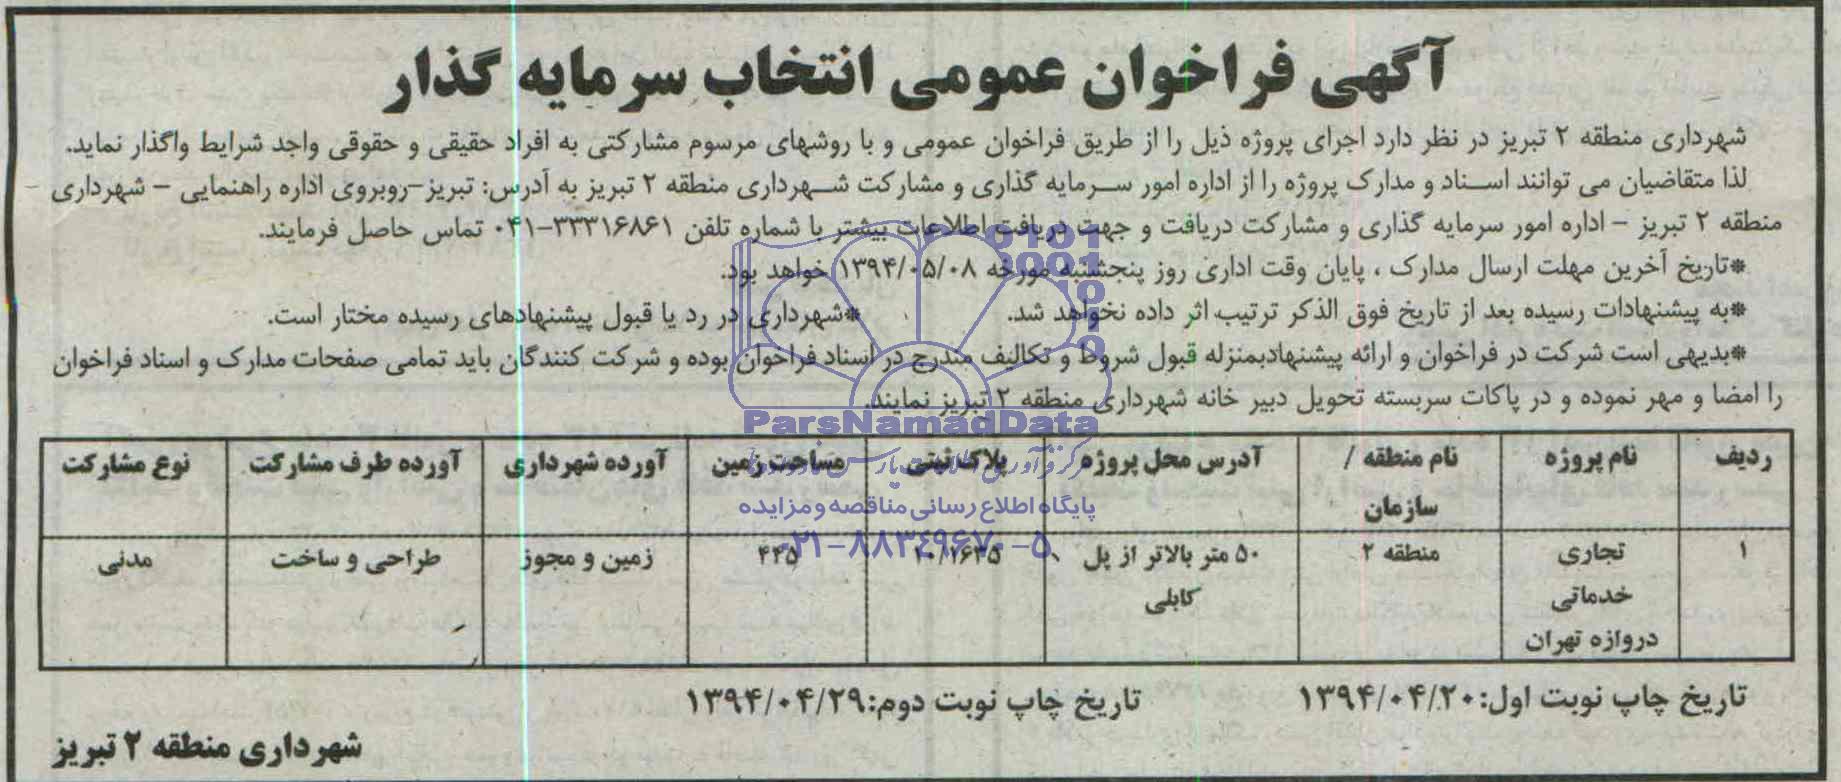 آگهی فراخوان عمومی انتخاب سرمایه گذار
شهرداری منطقه ۲ تبریز در نظر دارد اجرای پروژه ذیل را از طریق فراخوان عمومی و با روشهای مرسوم مشارکتی به افراد حقیقی و حقوقی واجد شرایط واگذار نماید.
لذا متقاضیان می توانند اسناد و مدارک پروژه را از اداره امور سرمایه گذاری و مشارکت شهرداری منطقه ۲ تبریز به آدرس: تبریز-روبروی اداره راهنمایی – شهرداری
منطقه ۲ تبریز – اداره امور سرمایه گذاری و مشارکت دریافت و جهت دریافت اطلاعات بیشتر با شماره تلفن ۳۳۳۱۶۸۶۱-۰۴۱ تماس حاصل فرمایند.
*تاریخ آخرین مهلت ارسال مدارک ، پایان وقت اداری روز پنجشنبه مورخه ۱۳۹۴/۰۵/۰۸ خواهد بود.
*به پیشنهادات رسیده بعد از تاریخ فوق الذکر ترتیب اثر داده نخواهد شد. *شهرداری در رد یا قبول پیشنهادهای رسیده مختار است.
*بدیهی است شرکت در فراخوان و ارائه پیشنهادبمنزله قبول شروط و تکالیف مندرج در اسناد فراخوان بوده و شرکت کنندگان باید تمامی صفحات مدارک و اسناد فراخوان
را امضا و مهر نموده و در پاکات سربسته تحویل دبیر خانه شهرداری منطقه ۲ تبریز نمایند.
ParsNamadData
ردیف نام پروژه نام منطقه / آدرس محل پروژه پلاک ثبتی مساحت زمین آورده شهرداری آورده طرف مشارکت نوع مشارکت
سازمان
پایگاه اطلاع رسانی مناقصه و مزایده
۰۲۱-۸۸۳۴۹۶۷۰-۵
۱ تجاری منطقه ۲ ۵۰ متر بالاتر از پل ۴۴۵ زمین و مجوز طراحی و ساخت مدنی
خدماتی کابلی
دروازه تهران
تاریخ چاپ نوبت اول:۱۳۹۴/۰۴/۲۰ تاریخ چاپ نوبت دوم:۱۳۹۴/۰۴/۲۹
شهرداری منطقه ۲ تبریز